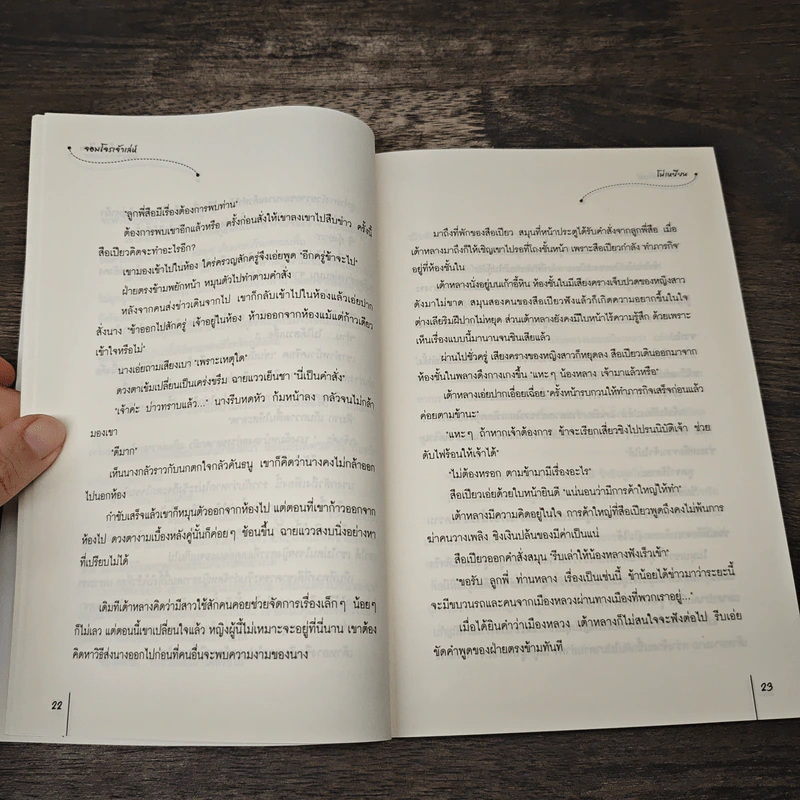 จอมโจรเจ้าเล่ห์
"ลูกพี่สือมีเรื่องต้องการพบท่าน"
ต้องการพบเขาอีกแล้วหรือ ครั้งก่อนสั่งให้เขาลงเขาไปสืบข่าว ครั้งนี้
สือเปียวคิดจะทำอะไรอีก?
เขามองเข้าไปในห้อง ใคร่ครวญสักครู่จึงเอ่ยพูด "อีกครู่ข้าจะไป"
ฝ่ายตรงข้ามพยักหน้า หมุนตัวไปทำตามคำสั่ง
หลังจากคนส่งข่าวเดินจากไป เขาก็กลับเข้าไปในห้องแล้วเอ่ยปาก
สั่งนาง "ข้าออกไปสักครู่ เจ้าอยู่ในห้อง ห้ามออกจากห้องแม้แต่ก้าวเดียว
เข้าใจหรือไม่"
นางเอ่ยถามเสียงเบา "เพราะเหตุใด"
ดวงตาเข้มเปลี่ยนเป็นเคร่งขรึม ฉายแววเย็นชา "นี่เป็นคำสั่ง"
"เจ้าค่ะ บ่าวทราบแล้ว..." นางรีบหดหัว ก้มหน้าลง กลัวจนไม่กล้า
มองเขา
"ดีมาก"
เห็นนางกลัวราวกับนกตกใจกลัวคันธนู เขาก็คิดว่านางคงไม่กล้าออก
ไปนอกห้อง
กำชับเสร็จแล้วเขาก็หมุนตัวออกจากห้องไป แต่ตอนที่เขาก้าวออกจาก
ห้องไป ดวงตางามเบื้องหลังคู่นั้นก็ค่อยๆ ช้อนขึ้น ฉายแววสงบนิ่งอย่างหา
ที่เปรียบไม่ได้
เดิมทีเต้าหลางคิดว่ามีสาวใช้สักคนคอยช่วยจัดการเรื่องเล็กๆ น้อยๆ
ก็ไม่เลว แต่ตอนนี้เขาเปลี่ยนใจแล้ว หญิงผู้นี้ไม่เหมาะจะอยู่ที่นี่นาน เขาต้อง
คิดหาวิธีส่งนางออกไปก่อนที่คนอื่นจะพบความงามของนาง
22
โม่เหยียน
มาถึงที่พักของสือเปียว สมุนที่หน้าประตูได้รับคำสั่งจากลูกพี่สือ เมื่อ
เต้าหลางมาถึงก็ให้เชิญเขาไปรอที่โถงชั้นหน้า เพราะสือเปียวกำลัง 'ทำภารกิจ'
อยู่ที่ห้องชั้นใน
เต้าหลางนั่งอยู่บนเก้าอี้หิน ห้องชั้นในมีเสียงครางเจ็บปวดของหญิงสาว
ดังมาไม่ขาด สมุนสองคนของสือเปียวฟังแล้วก็เกิดความอยากขึ้นในใจ
ต่างเลียริมฝีปากไม่หยุด ส่วนเต้าหลางยังคงมีใบหน้าไร้ความรู้สึก ด้วยเพราะ
เห็นเรื่องแบบนี้มานานจนชินเสียแล้ว
ผ่านไปชั่วครู่ เสียงครางของหญิงสาวก็หยุดลง สือเปียวเดินออกมาจาก
ห้องชั้นในพลางดึงกางเกงขึ้น "แหะๆ น้องหลาง เจ้ามาแล้วหรือ"
เต้าหลางเอ่ยปากเอื่อยเฉื่อย "ครั้งหน้ารบกวนให้ทำภารกิจเสร็จก่อนแล้ว
ค่อยตามข้านะ"
"แหะๆ ถ้าหากเจ้าต้องการ ข้าจะเรียกเสี่ยวชิงไปปรนนิบัติเจ้า ช่วย
ดับไฟร้อนให้เจ้าได้"
"ไม่ต้องหรอก ตามข้ามามีเรื่องอะไร"
สือเปียวเอ่ยด้วยใบหน้ายินดี "แน่นอนว่ามีการค้าใหญ่ให้ทำ"
เต้าหลางมีความคิดอยู่ในใจ การค้าใหญ่ที่สือเปียวพูดถึงคงไม่พ้นการ
ฆ่าคนวางเพลิง ชิงเงินปล้นของมีค่าเป็นแน่
สือเปียวออกคำสั่งสมุน "รีบเล่าให้น้องหลางฟังเร็วเข้า"
"ขอรับ ลูกพี่ ท่านหลาง เรื่องเป็นเช่นนี้ ข้าน้อยได้ข่าวมาว่าระยะนี้
จะมีขบวนรถและคนจากเมืองหลวงผ่านทางเมืองที่พวกเราอยู่..."
เมื่อได้ยินคำว่าเมืองหลวง เต้าหลางก็ไม่สนใจจะฟังต่อไป รีบเอ่ย
ขัดคำพูดของฝ่ายตรงข้ามทันที
23